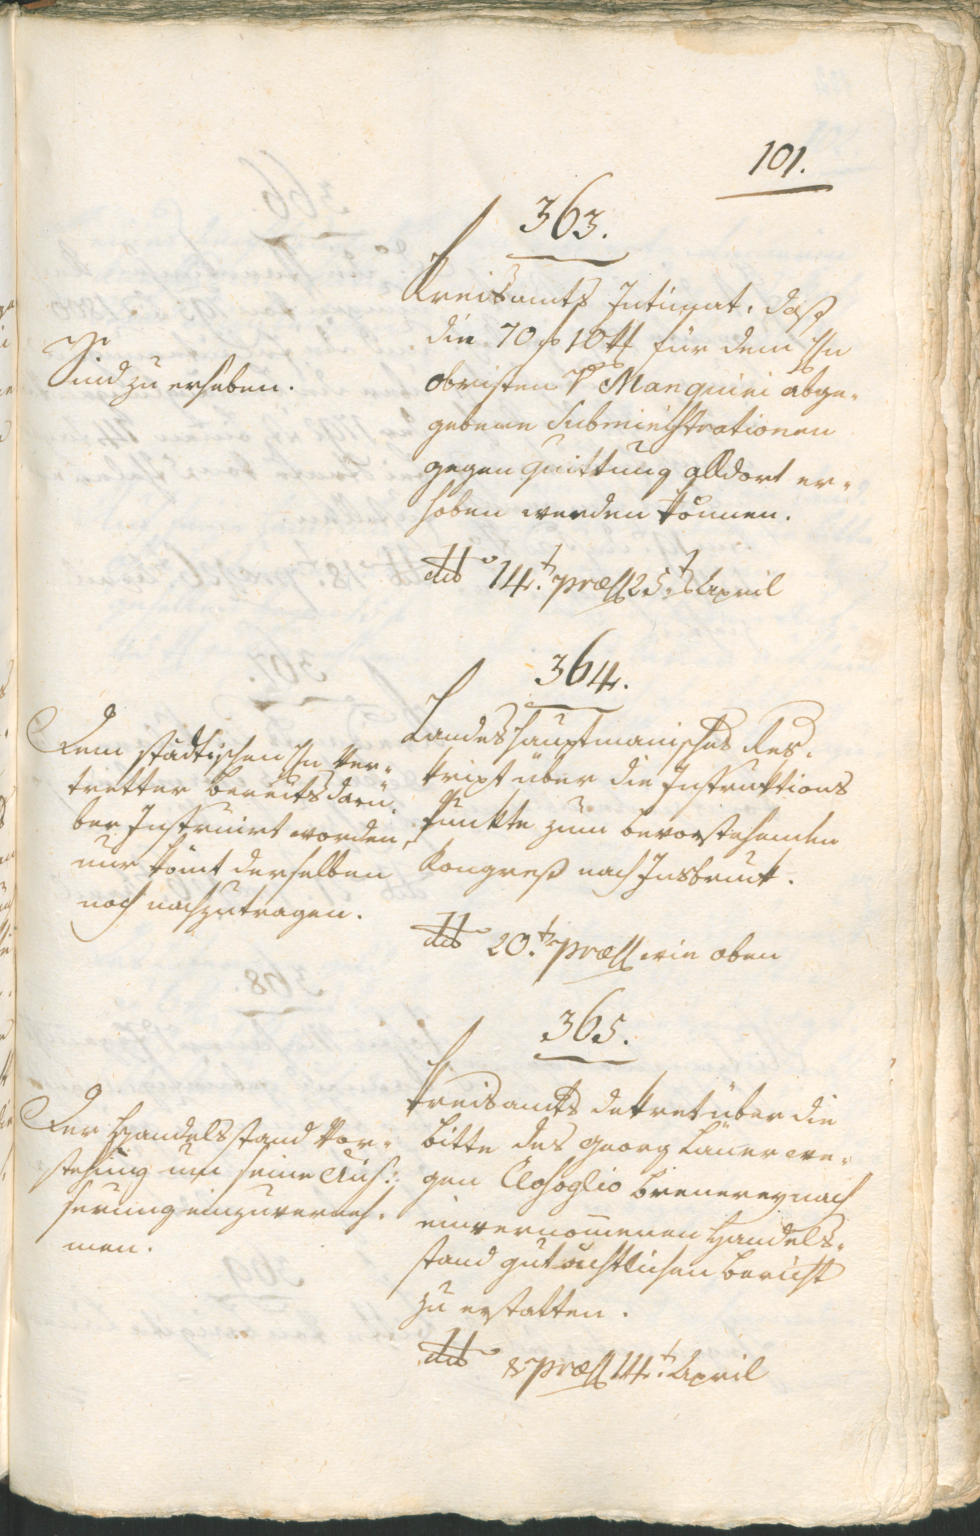 101.
363.
Kreisamts Intimat. daß
die 70 f 10 x für dem H
Obristen V Manquini abge-
gebene Subministrationen
gegen Quittung alldort er-
hoben werden können.
ddo 14.t præs 25.t April
Sind zu erheben.
364.
Landeshauptmanisches Res-
kript über die Instruktions
Punkte zum bevorstehenden
Kongreß nach Insbruk.
ddo 20.t præs wie oben
Dem städtischen H Ver-
tretter bereits darü-
ber Instruirt worden,
nur kömt derselben
noch nachzutragen.
365.
Kreisamts Dekret über die
Bitte des Georg Laner we-
gen Rosoglio Brenerey nach
einvernomenen Handels-
stand gutächtlichen Bericht
zu erstatten.
ddo 8 præs 14.t April
Der Handelsstand Vor-
stehung um seine Aüs-
serung einzuverneh-
men.